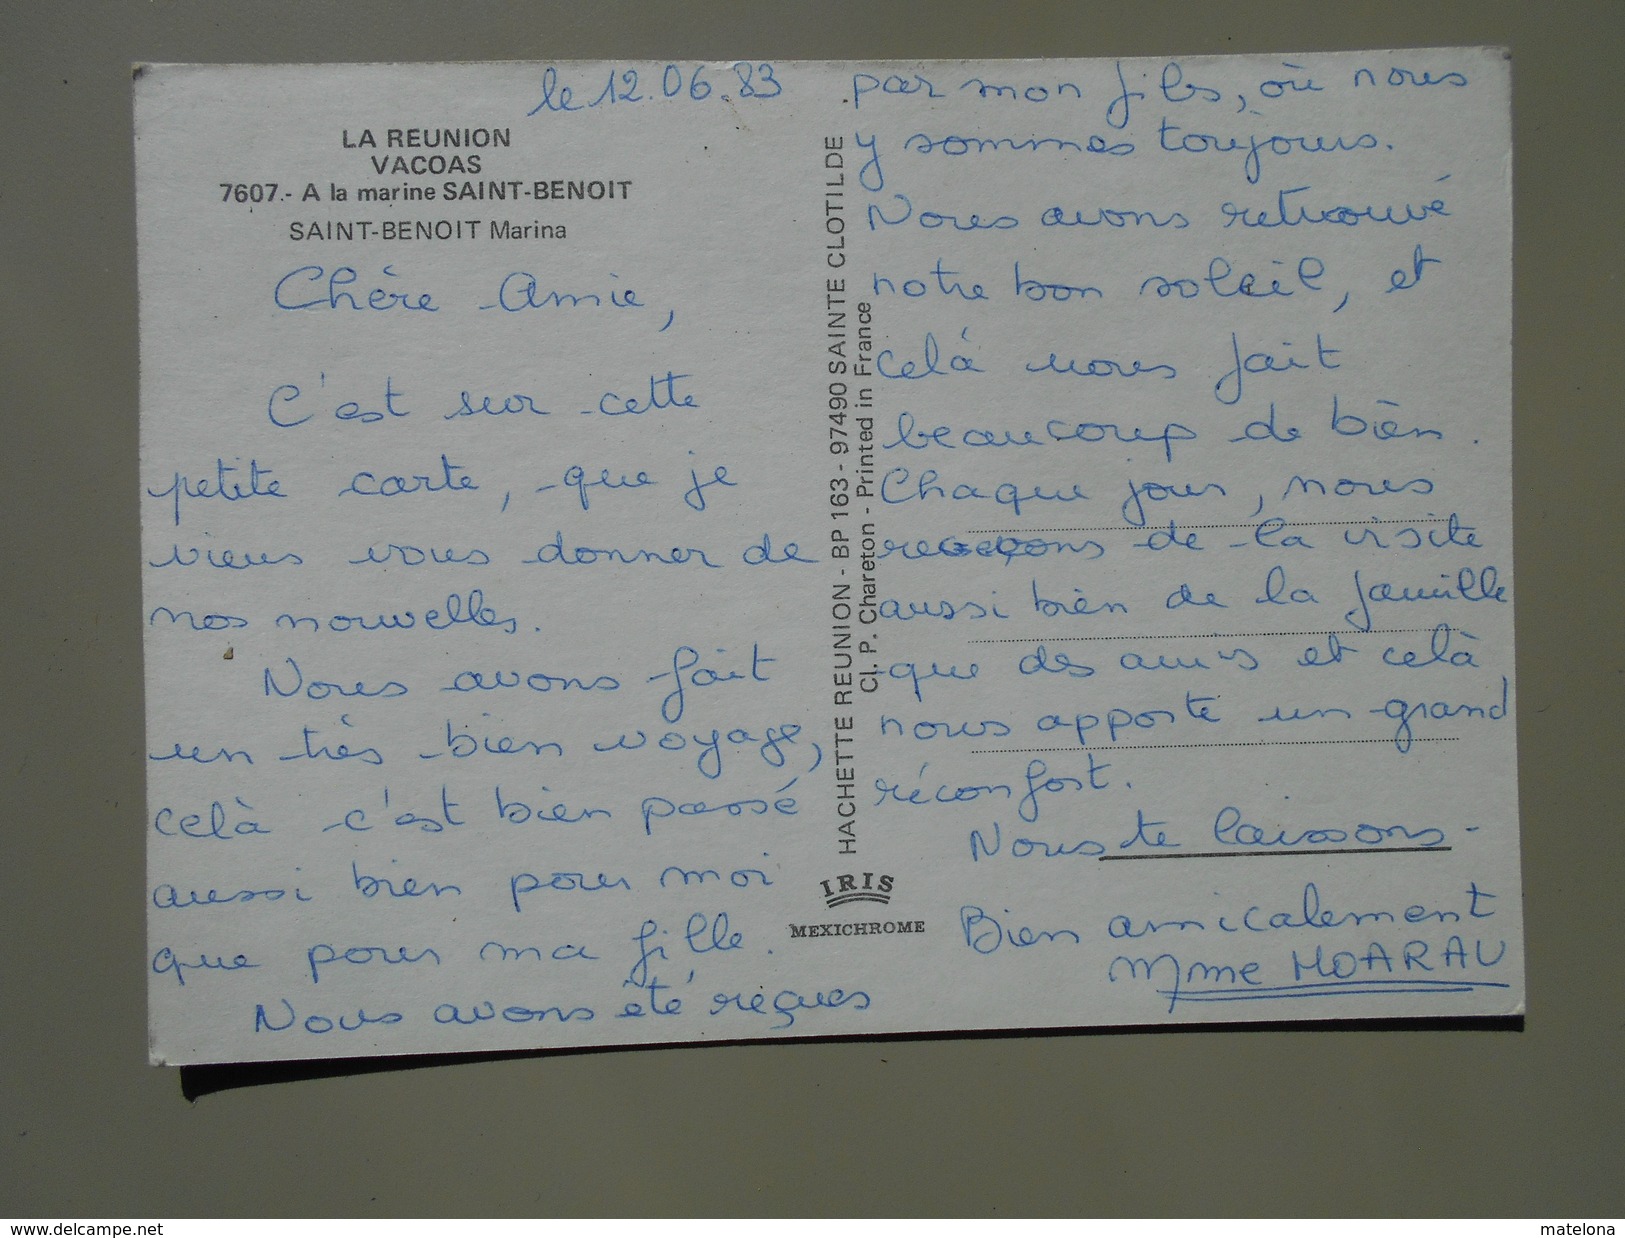 le 12.06.83
LA REUNION
VACOAS
7607.- A la marine SAINT-BENOIT
SAINT-BENOIT Marina
Chère Amie,
C'est sur cette
petite carte, que je
viens vous donner de
nos nouvelles.
Nous avons fait
un très bien voyage,
celà c'est bien passé
aussi bien pour moi
que pour ma fille.
Nous avons été reçues
HACHETTE REUNION - BP 163 - 97490 SAINTE CLOTILDE
Cl. P. Chareton - Printed in France
IRIS
MEXICHROME
par mon fils, où nous
y sommes toujours.
Nous avons retrouvé
notre bon soleil, et
celà nous fait
beaucoup de bièn.
Chaque jour, nous
recevons de la visite
aussi bièn de la famille
que des amis et celà
nous apporte un grand
réconfort.
Nous te laissons -
Bien amicalement
Mme HOARAU
www.delcampe.net
matelona